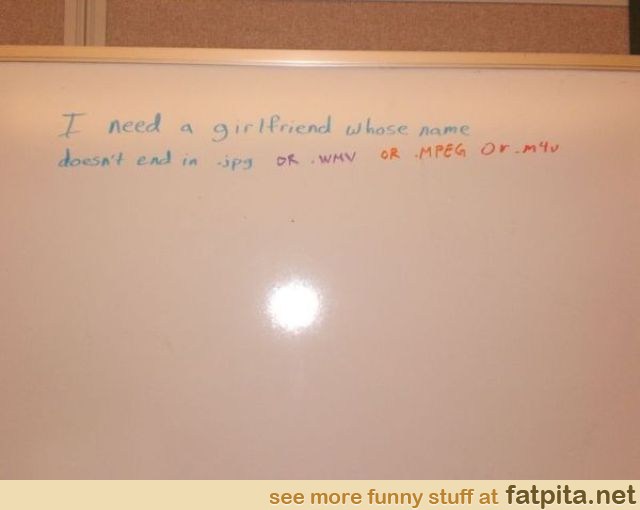 I need a girlfriend whose name
doesn't end in .jpg OR .WMV OR .MPEG Or .m4v
see more funny stuff at fatpita.net